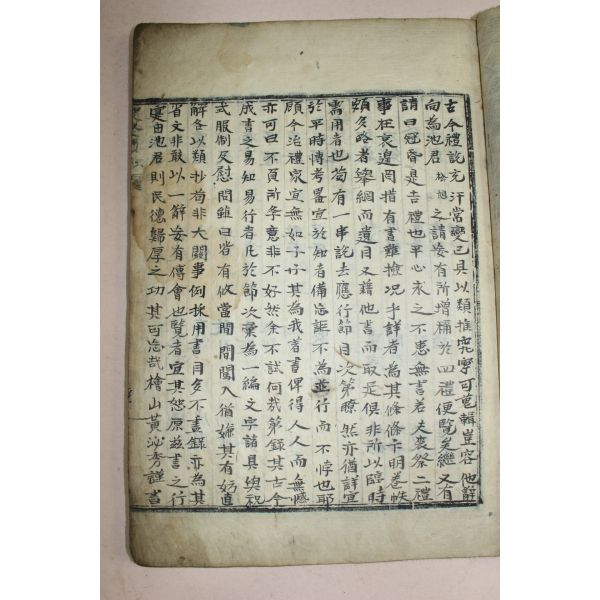 古今禮說充汗常變已具以類推究寧可蒐輯豈容他辭
向為池君 之請妄有所增補於四禮便覽矣繼又有
請曰冠昏是吉禮也平心求之不患無書若夫喪祭二禮
事在哀遑罔措有書難檢況乎詳者為其條條卞明卷帙
頗多略者舉綱而遺目又藉他書而取是俱非所以臨時
需用者也苟有一串說去應行節目次第瞭然亦猶詳宜
於平時博考畧宜於知者備忘詎不為並行而不悖也耶
顧今治禮家宜無如子好其為我著書俾得人人而無憾
亦可曰不負所學意非不好然余不試何哉第錄其古今
成書之易知易行者凡於節次彙為一編文字諸具與祝
式服制及慰問雖曰皆有攸當間間闖入猶嫌其有妨直
解各以類抄苟非大關事例採用書目多不盡錄亦為其
省文非敢以一辭妄有傳會也覽者宜其恕原玆書之行
寔由池君則民德歸厚之功其可忘哉檜山黃泌秀謹書